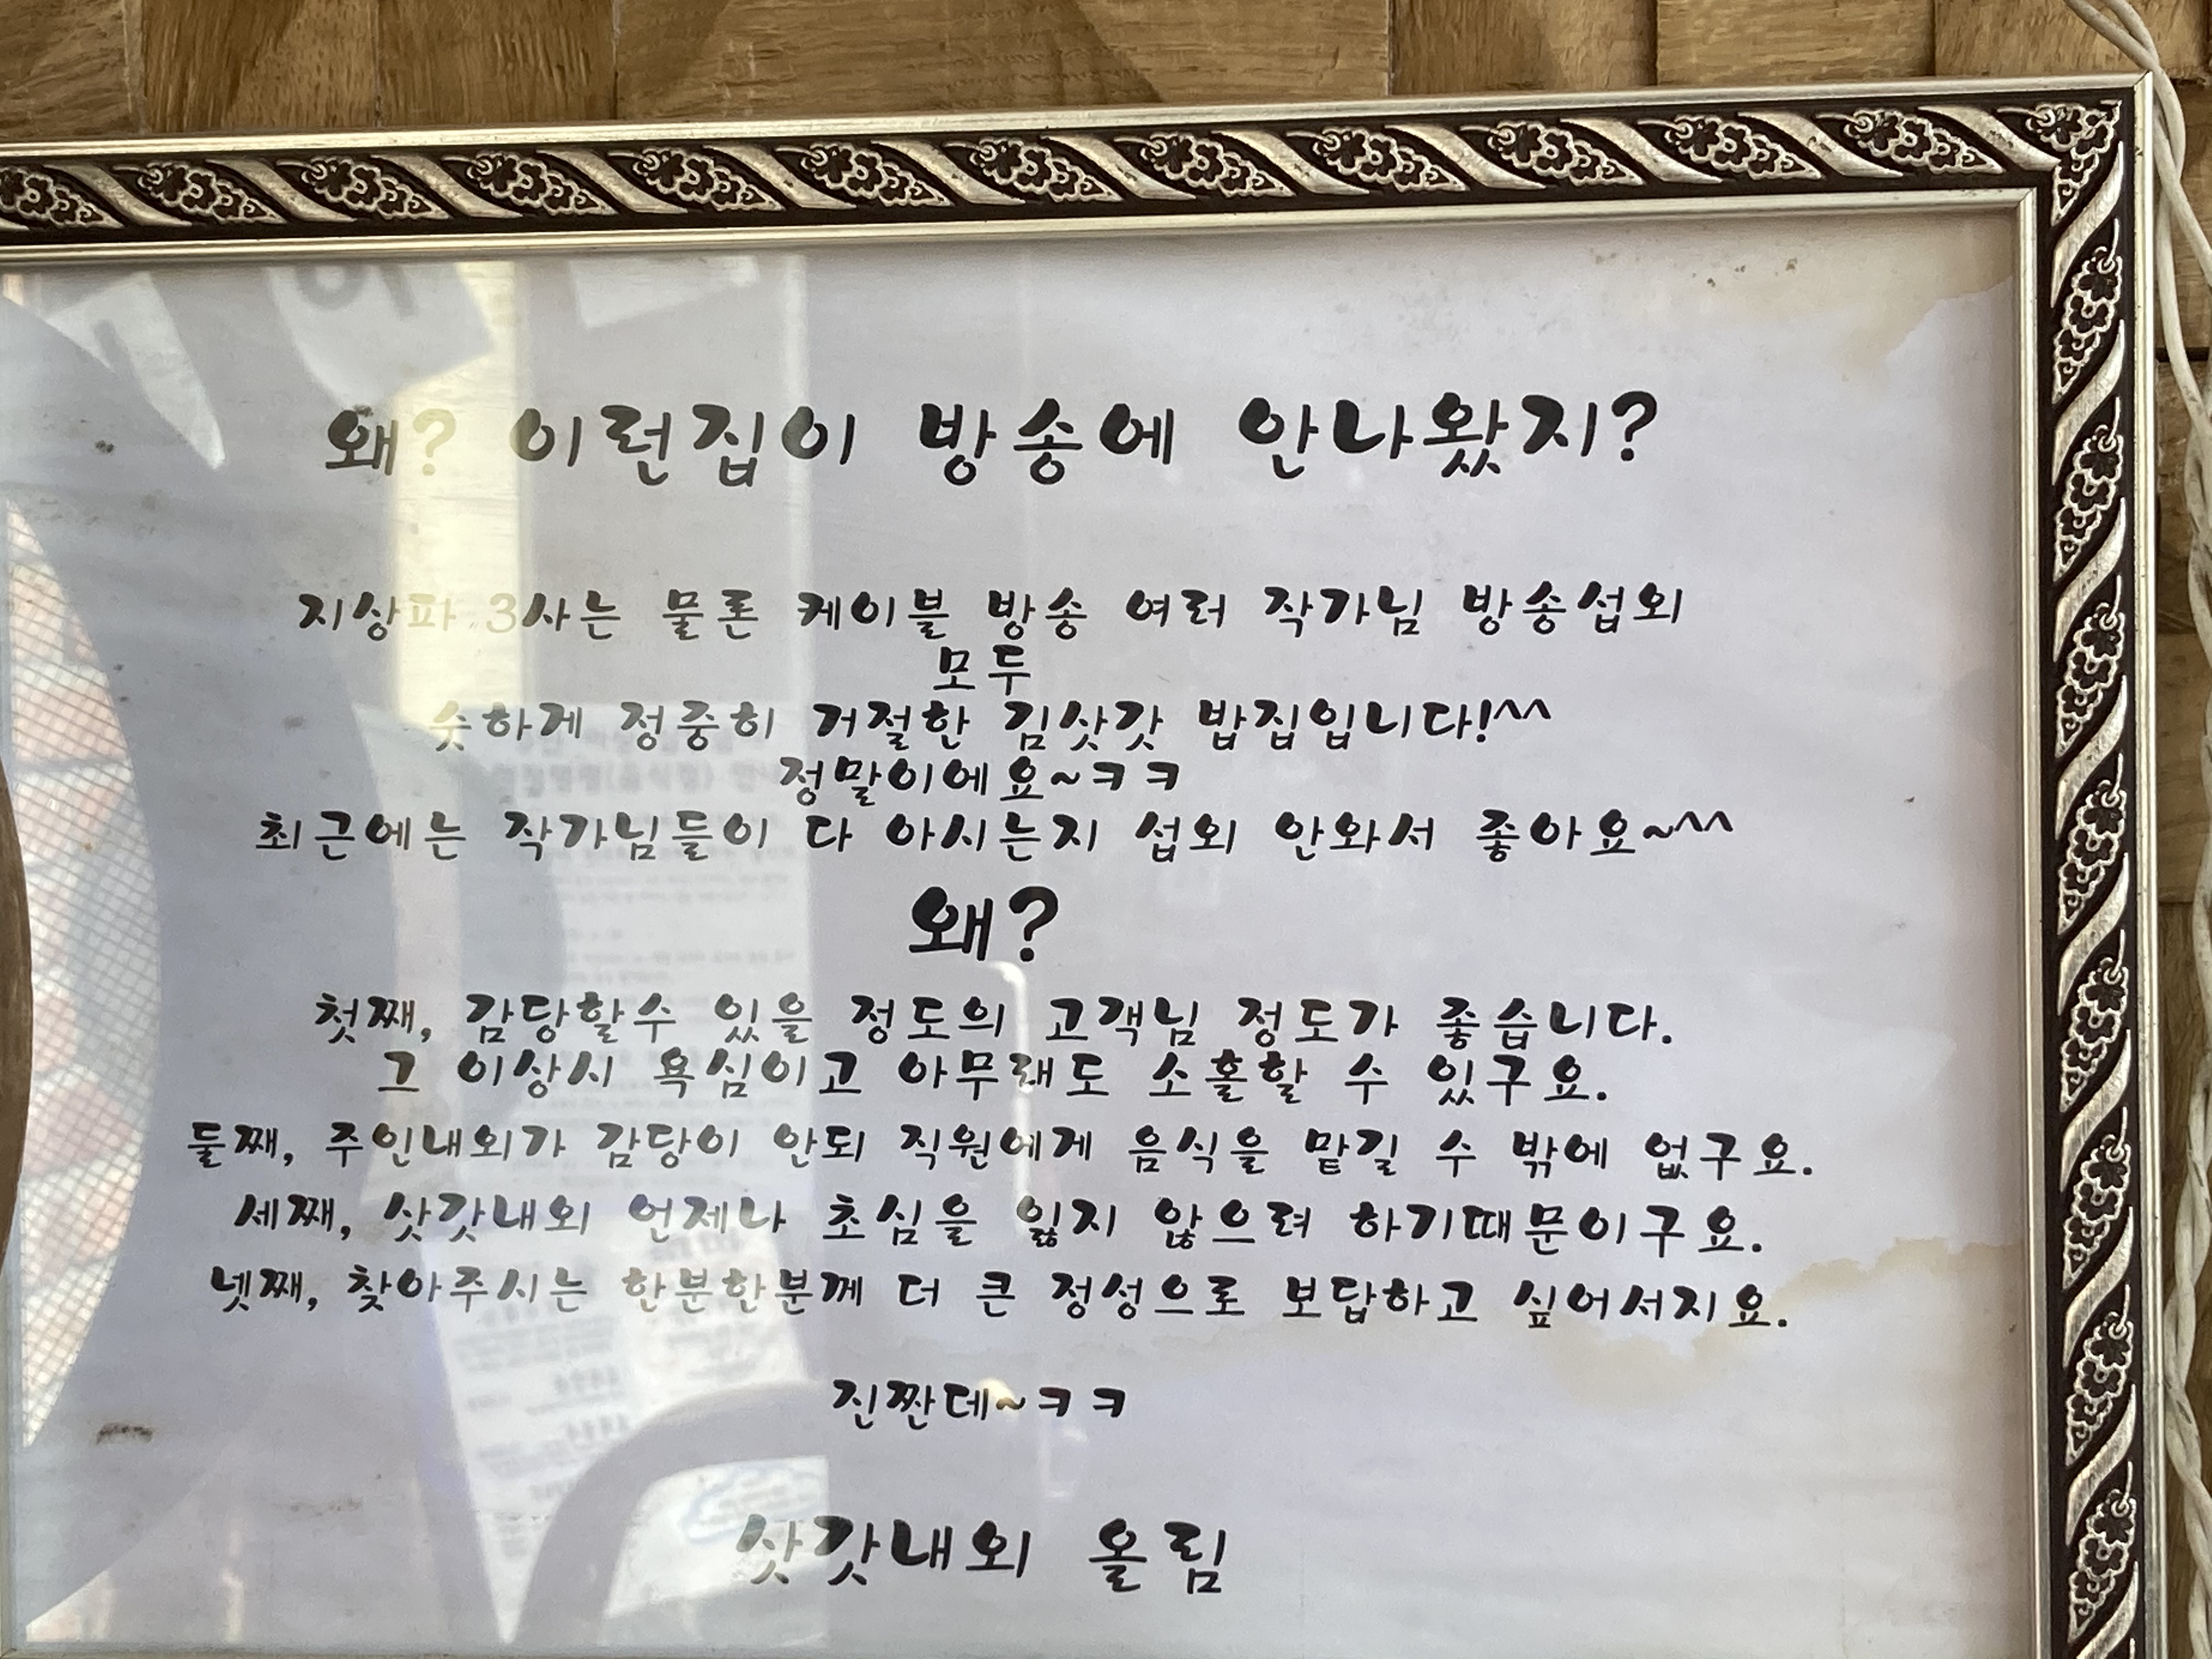 왜? 이런집이 방송에 안나왔지?
지상파 3사는 물론 케이블 방송 여러 작가님 방송섭외
모두
숫하게 정중히 거절한 김삿갓 밥집입니다!^^
정말이에요~ㅋㅋ
최근에는 작가님들이 다 아시는지 섭외 안와서 좋아요~^^
왜?
첫째, 감당할수 있을 정도의 고객님 정도가 좋습니다.
그 이상시 욕심이고 아무래도 소홀할 수 있구요.
둘째, 주인내외가 감당이 안되 직원에게 음식을 맡길 수 밖에 없구요.
세째, 삿갓내외 언제나 초심을 잃지 않으려 하기때문이구요.
넷째, 찾아주시는 한분한분께 더 큰 정성으로 보답하고 싶어서지요.
진짠데~ㅋㅋ
삿갓내외 올림